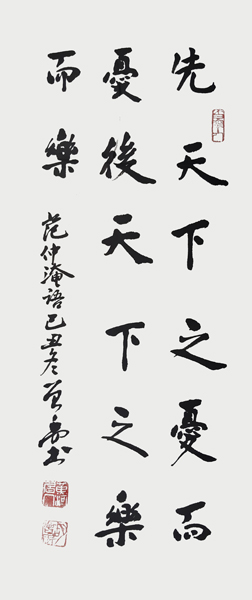 先天下之憂而
憂後天下之樂
而樂
范仲淹語己丑冬